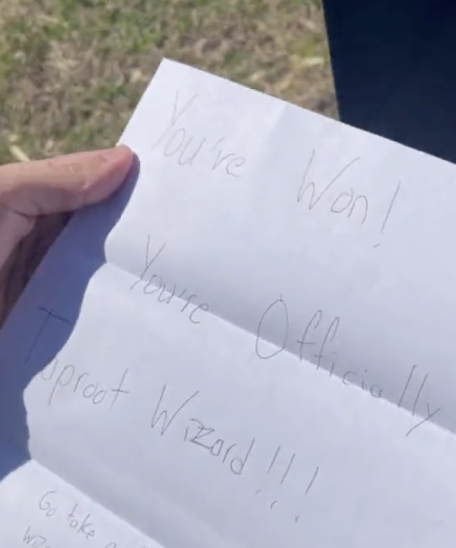 You've Won!
You're Officially
Taproot Wizard!!!
Go take